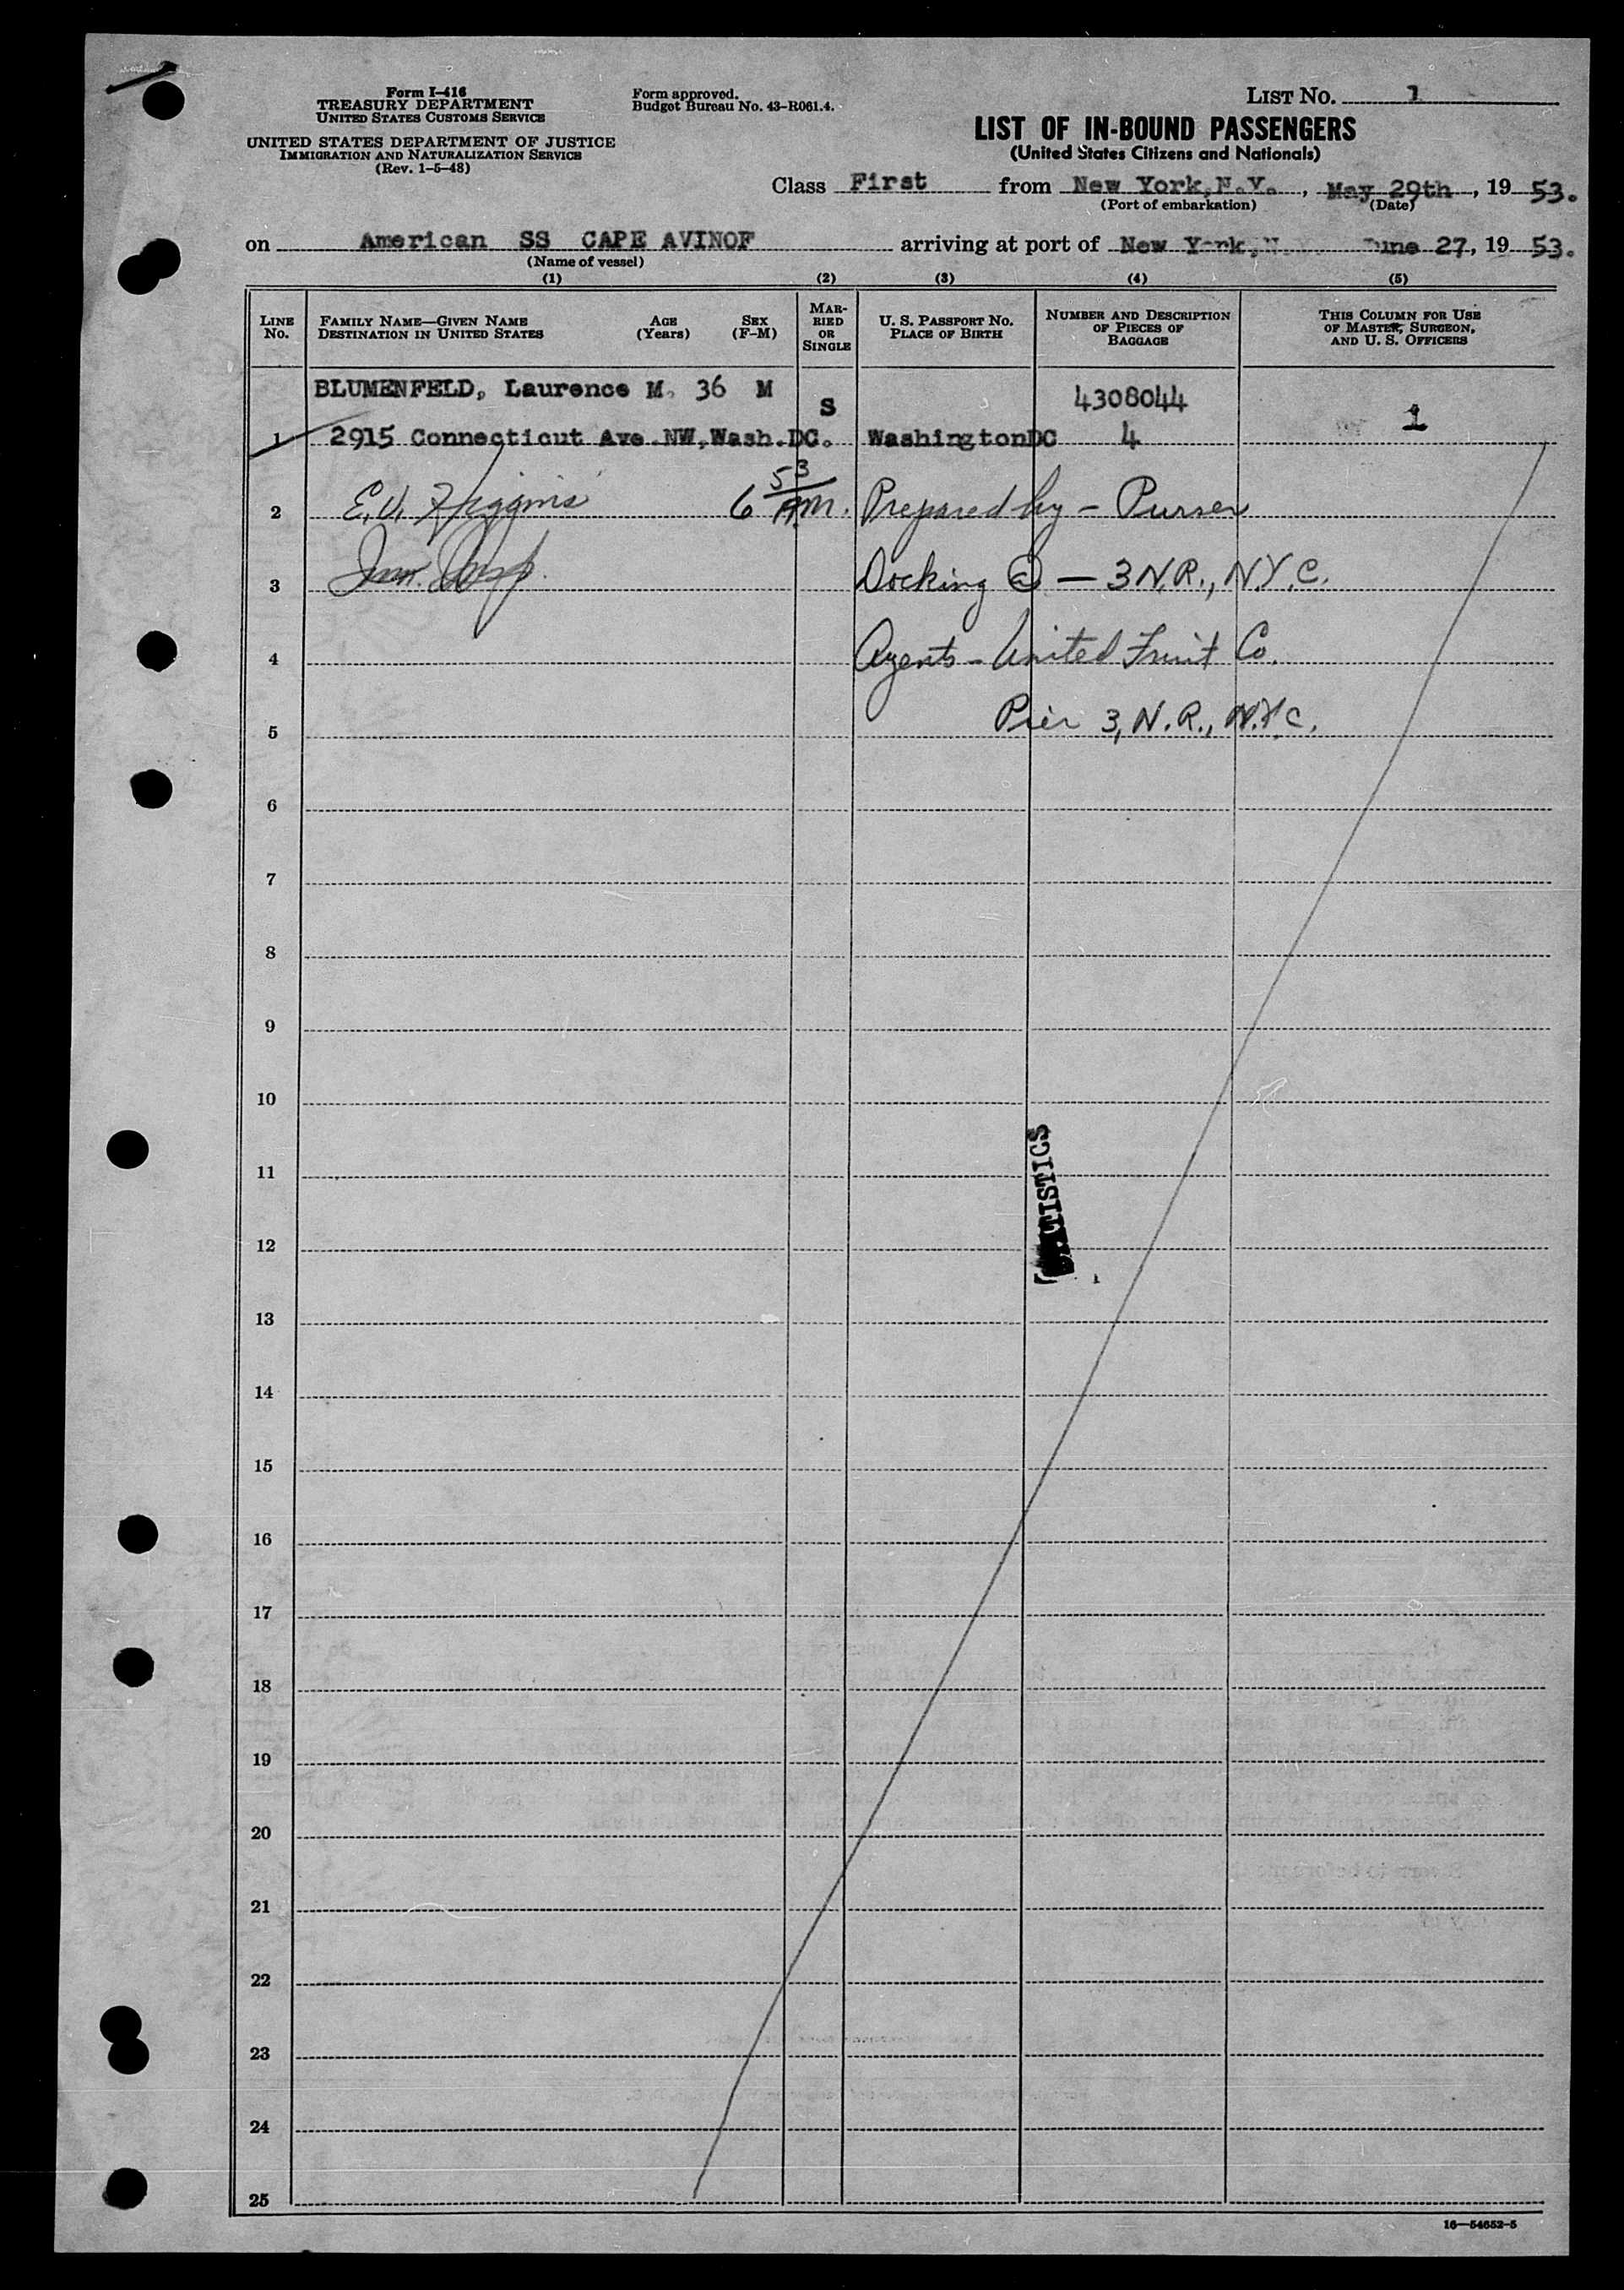 Form I-416
TREASURY DEPARTMENT
UNITED STATES CUSTOMS SERVICE
UNITED STATES DEPARTMENT OF JUSTICE
IMMIGRATION AND NATURALIZATION SERVICE
(Rev. 1-5-48)
Form approved.
Budget Bureau No. 43-R061.4.
LIST NO. 1
LIST OF IN-BOUND PASSENGERS
(United States Citizens and Nationals)
Class First from New York, N.Y. , May 29th , 19 53.
(Port of embarkation) (Date)
on American SS CAPE AVINOF arriving at port of New York, N. June 27, 19 53.
(Name of vessel)
(1) (2) (3) (4) (5)
LINE No. FAMILY NAME—GIVEN NAME DESTINATION IN UNITED STATES AGE (Years) SEX (F-M) MARRIED OR SINGLE U. S. PASSPORT NO. PLACE OF BIRTH NUMBER AND DESCRIPTION OF PIECES OF BAGGAGE THIS COLUMN FOR USE OF MASTER, SURGEON, AND U. S. OFFICERS
BLUMENFELD, Laurence M. 36 M S 4308044 1
1 2915 Connecticut Ave. NW, Wash. DC. Washington DC 4
2 E.V. Higgins 6 53 AM. Prepared by - Purser
3 Imm. Insp. Docking @ — 3 N.R., N.Y.C.
4 Agents - United Fruit Co.
5 Pier 3, N.R., N.Y.C.
6
7
8
9
10
11
STATISTICS
12
13
14
15
16
17
18
19
20
21
22
23
24
25
16—54652-5